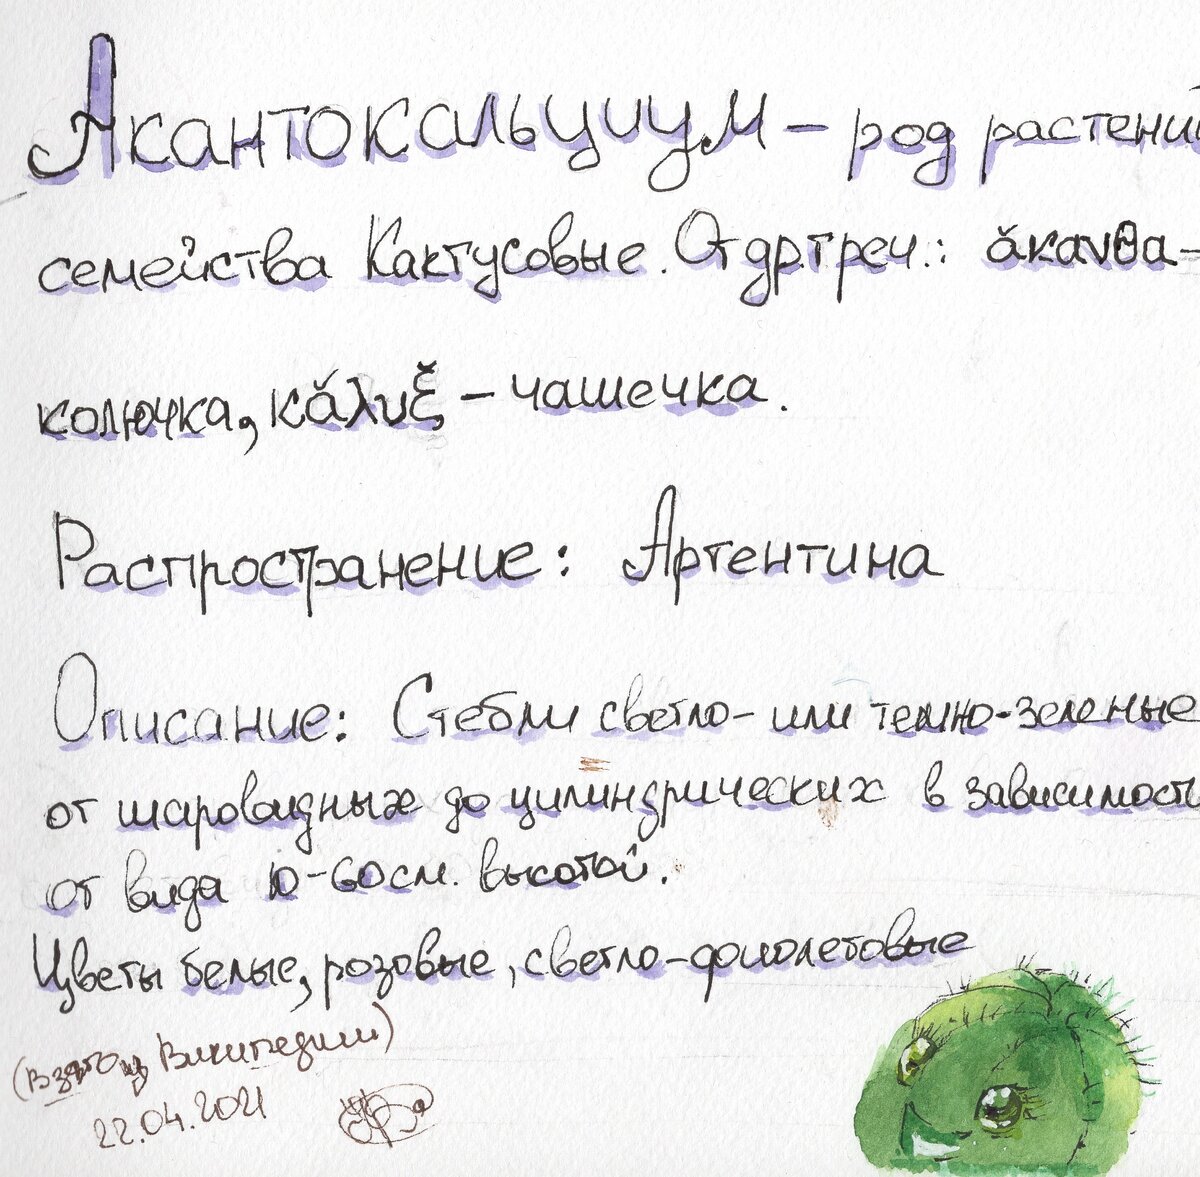 Акантокальциум – род растений
семейства Кактусовые. От др.греч.: ἄκανθα –
колючка, κάλυξ – чашечка.
Распространение: Аргентина
Описание: Стебли светло- или темно-зеленые
от шаровидных до цилиндрических в зависимость
от вида 10-60см. высотой.
Цветы белые, розовые, светло-фиолетовые
(Взято из Википедии)
22.04.2021